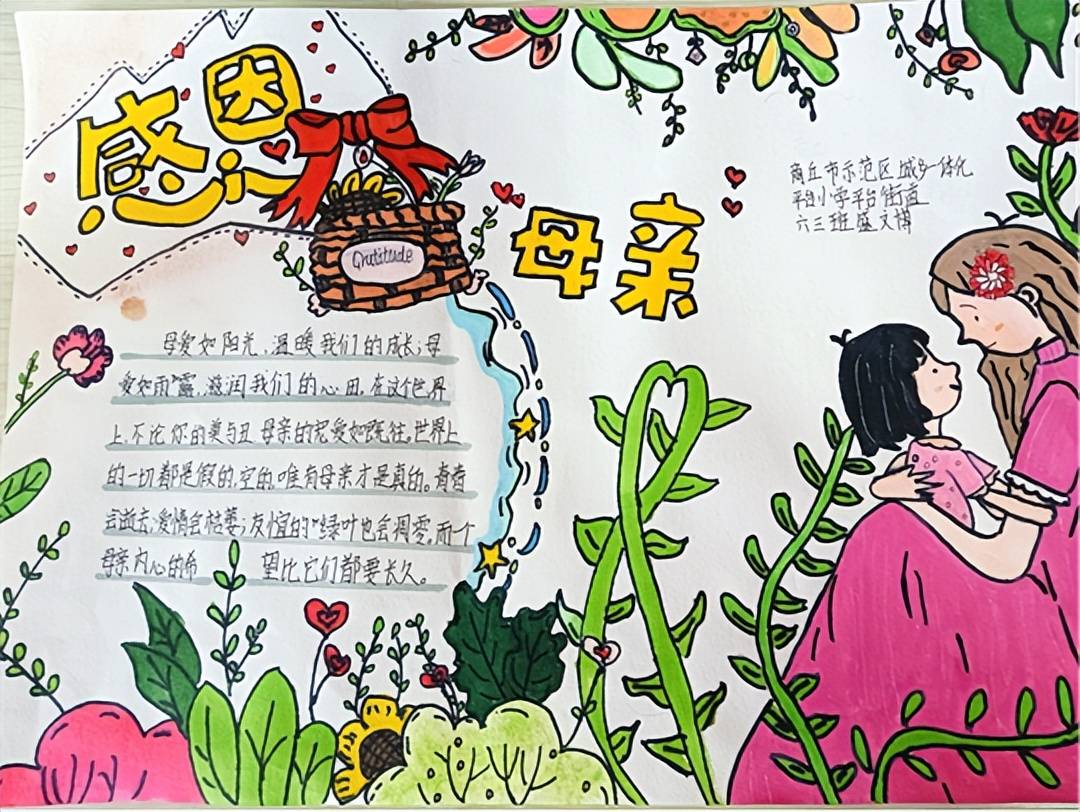 感恩
母亲
Gratitude
商丘市示范区城乡一体化
平台小学平台街道
六三班盛文博
母爱如阳光,温暖我们的成长;母
爱如雨露,滋润我们的心田。在这个世界
上,不论你的美与丑,母亲的宠爱如既往。世界上
的一切都是假的,空的,唯有母亲才是真的。青春
会逝去;爱情会枯萎;友谊的绿叶也会凋零。而一个
母亲内心的希 望比它们都要长久。